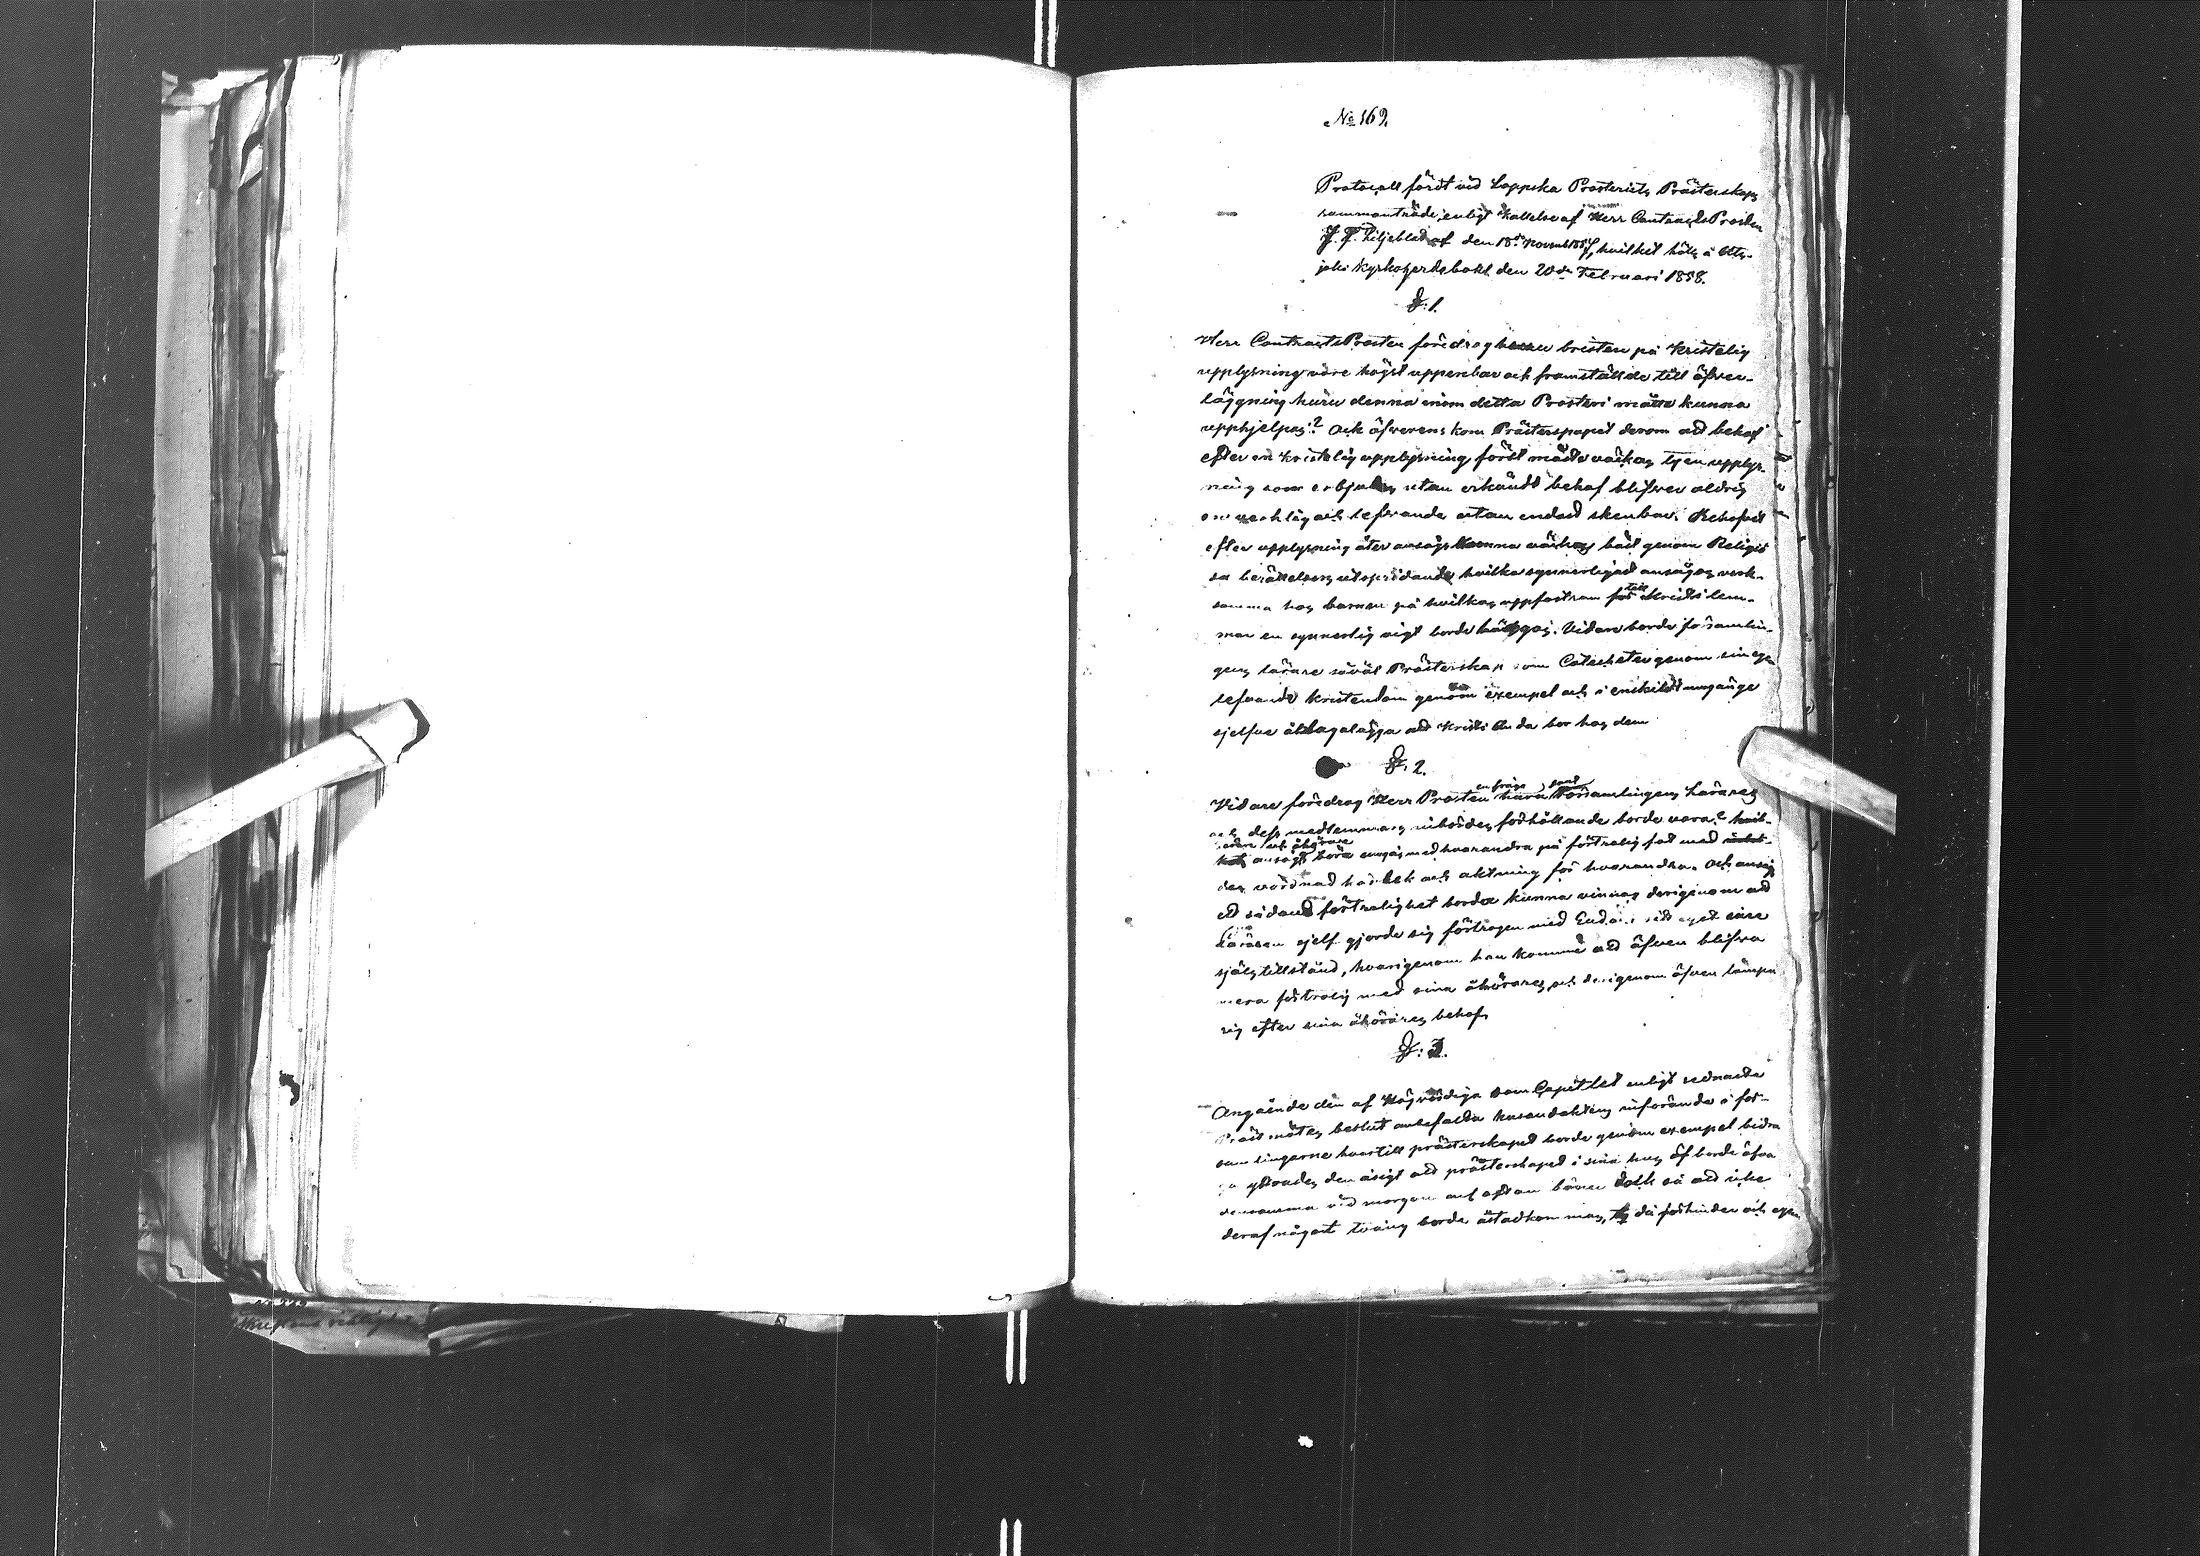 No 169.
Protocoll fördt vid Lappska Prosteriets Prästerskaps
sammanträde, enligt kallelse af Herr ContractsProsten
J. F. Liljeblad af den 18de Novemb 1857, hvilket hölls å Uts-
joki Kyrkoherdebohl den 20de Februari 1858.
§. 1.
Herr ContractsProsten föredrog huru bristen på Kristelig
upplysning vore högst uppenbar och framstälde till öfver-
läggning huru denna inom detta Prosteri måtte kunna
upphjelpas? Och öfverens kom Prästerskapet derom att behof
efter en kristelig upplysning först måste väckas, ty en upplys-
ning som erbjudes utan erkändt behof blifver aldrig
en verklig och lefvande utan endast skenbar. Behofvet
efter upplysning åter ansågs kunna väckas bäst genom Religiö-
sa berättelsers utspridande hvilka synnerligast ansågos verk-
samma hos barnen på hvilkas uppfostran till Kristi lem-
mar en synnerlig vigt borde läggas. Vidare borde församlin-
gens lärare såväl Prästerskap som Catecheter genom sin egen
lefvande kristendom genom exempel och i enskildt umgänge
sjelfve ådagalägga att Kristi Anda bor hos dem
§. 2.
Vidare föredrog Herr Prosten en fråga huru Församlingens Lärares
och dess medlemmars inbördes förhållande borde vara?
ansågs böra umgås med hvarandra på förtrolig fot med
des vördnad kärlek och aktning för hvarandra. Och ansågs
ett sådant förtrolighet borde kunna vinnas derigenom att
Läraren sjelf gjorde sig förtrogen med Gud och sitt eget inre
själstillstånd, hvarigenom han komme att äfven blifva
mera förtrolig med sina åhörares och derigenom äfven lämpa
sig efter sina åhörares behof.
§. 3.
Angående den af Högvördiga DomCapitlet enligt sednaste
Prästmötes beslut anbefalda husandaktens införande i för-
samlingarne hvartill prästerskapet borde genom exempel bidra-
ga yttrades den åsigt att prästerskapet i sina hus borde öfva
densamma vid morgon och afton bönen dock så att icke
deraf något tvång borde åstadkommas, ty då förhinder och egen